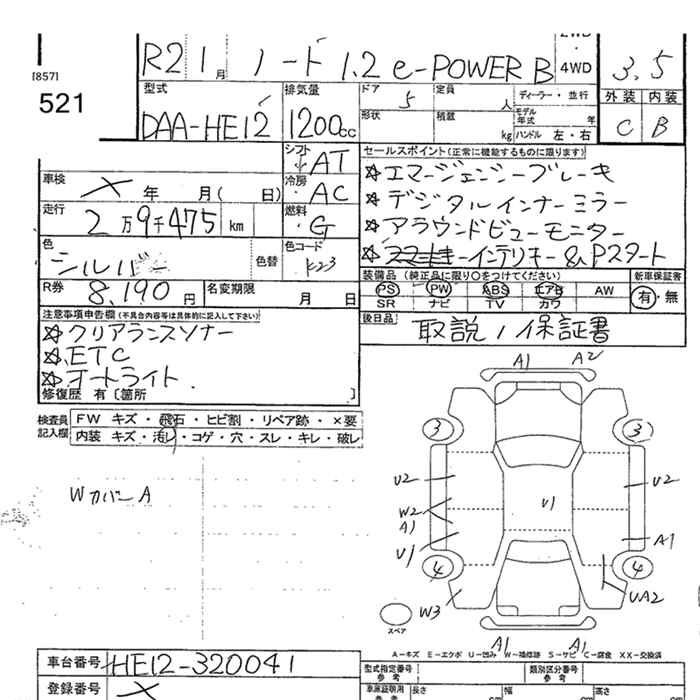 [857]
521
R2 1月 ノート 1.2 e-POWER B
2WD ・ 4WD
3.5
型式 DAA-HE12
排気量 1200cc
ドア 5
定員 人
ディーラー・並行
形状
積載 kg
モデル年式 年
ハンドル 左・右
外装 内装
C B
シフト AT
車検 × 年 月( 日)
冷房 AC
走行 2万9千475 km
燃料 G
色 シルバー 色替
色コード K23
R券 8,190 円
名変期限 月 日
セールスポイント(正常に機能するものに限ります)
☆エマージェンシーブレーキ
☆デジタルインナーミラー
☆アラウンドビューモニター
インテリキー & Pスタート
装備品(純正品に限り○をつけてください)
新車保証書
PS PW ABS エアB AW
SR ナビ TV カワ
有・無
後日品 取説/保証書
注意事項申告欄(不具合内容等は具体的に記入して下さい)
☆クリアランスソナー
☆ETC
☆オートライト.
修復歴 有〔箇所 〕
検査員記入欄
FW キズ・飛石・ヒビ割・リペア跡・×要
内装 キズ・汚レ・コゲ・穴・スレ・キレ・破レ
Wカバー A
A1 A2
3 3
U2 U2
W2 U1
A1 A1
U1
4 4
W3 UA2
スペア
A1 A1
A-キズ E-エクボ U-凹み W-補修跡 S-サビ C-腐食 XX-交換済
車台番号 HE12-320041
登録番号 ×
型式指定番号 参考
類別区分番号 参考
車庫証明用 参考
長さ cm
幅 cm
高さ cm